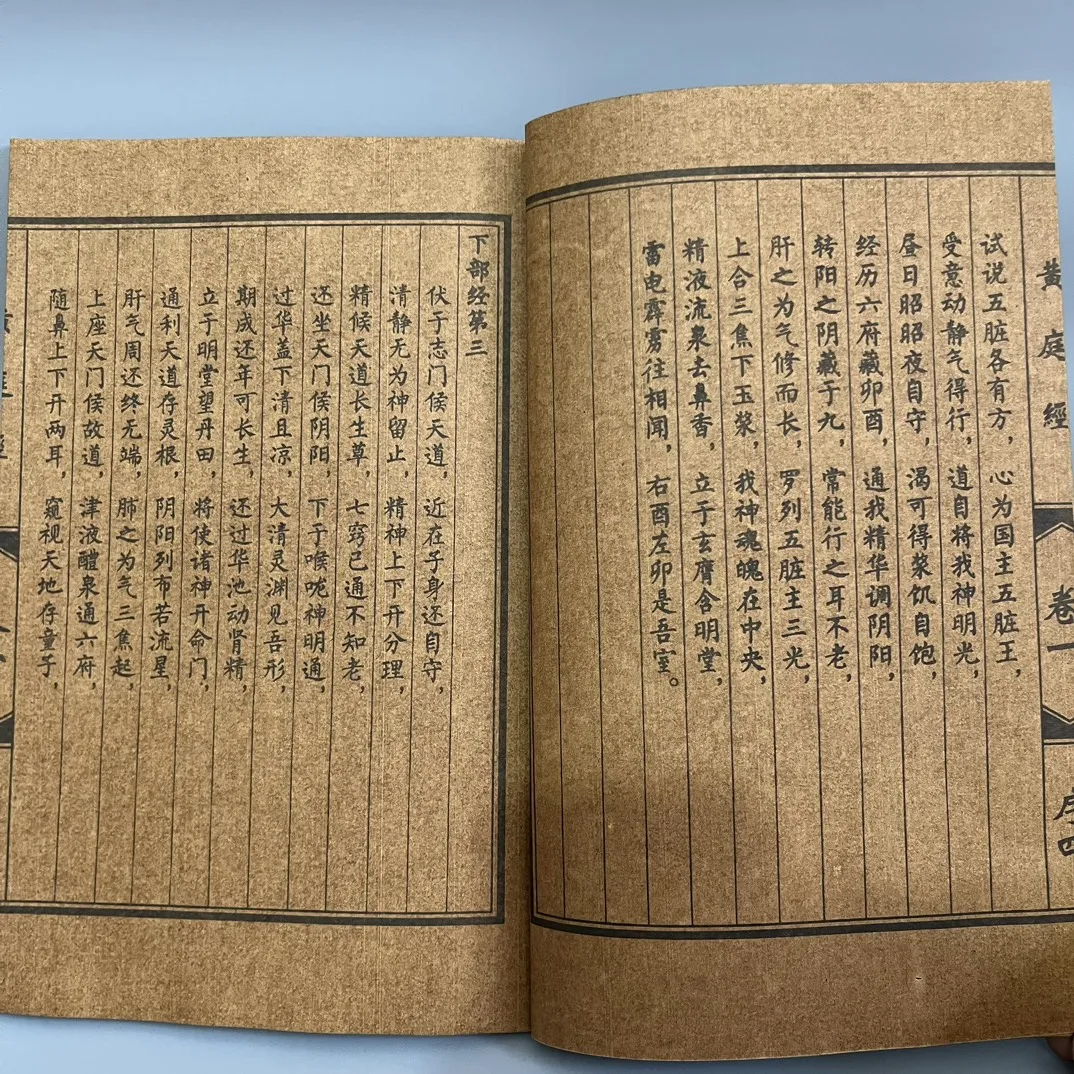 黄庭經
卷一
序四
试说五脏各有方，心为国主五脏王，
受意动静气得行，道自将我神明光，
昼日昭昭夜自守，渴可得浆饥自饱，
经历六府藏卯酉，通我精华调阴阳，
转阳之阴藏于九，常能行之耳不老，
肝之为气修而长，罗列五脏主三光，
上合三焦下玉浆，我神魂魄在中央，
精液流泉去鼻香，立于玄膺含明堂，
雷电霹雳往相闻，右酉左卯是吾室。
下部经第三
伏于志门候天道，近在子身还自守，
清静无为神留止，精神上下开分理，
精候天道长生草，七窍已通不知老，
还坐天门侯阴阳，下于喉咙神明通，
过华盖下清且凉，大清灵渊见吾形，
期成还年可长生，还过华池动肾精，
立于明堂望丹田，将使诸神开命门，
通利天道存灵根，阴阳列布若流星，
肝气周还终无端，肺之为气三焦起，
上座天门侯故道，津液醴泉通六府，
随鼻上下开两耳，窥视天地存童子，